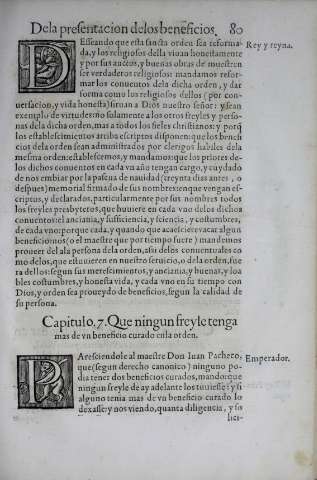 De la presentacion de los beneficios. 80
DEsseando que esta sancta orden sea reforma-
da, y los religiosos della viuan honestamente
y por sus auctos, y buenas obras de muestren
ser verdaderos religiosos: mandamos refor-
mar los conuentos dela dicha orden, y dar
forma como los religiosos dellos (por con-
uersacion, y vida honesta) siruan a Dios nuestro señor: y sean
exemplo de virtudes: no solamente a los otros freyles y perso-
nas dela dicha orden, mas a todos los fieles christianos: y porq̃
los establescimientos arriba escriptos disponen: que los benefi
cios dela orden sean administrados por clerigos habiles dela
mesma orden: establescemos, y mandamos: que los priores de-
los dichos conuentos en cada vn año tengan cargo, y cuydado
de nos embiar por la pascua de nauidad (treynta dias antes, o
despues) memorial firmado de sus nombres: en que vengan es-
criptos, y declarados, particularmente por sus nombres todos
los freyles presbyteros, que huuiere en cada vno delos dichos
conuentos: el anciania, y sufficiencia, y sciencia, y costumbres,
de cada vno: porque cada, y quando que acaesciere vacar algun
beneficio: nos (o el maestre que por tiempo fuere) mandemos
proueer del ala persona dela orden, assi delos conuentuales co
mo delos, que estuuieren en nuestro seruicio, o dela orden, fue
ra dellos: segun sus merescimientos, y anciania, y buenas, y loa
bles costumbres, y honesta vida, y cada vno en su tiempo con
Dios, y orden sea proueydo de beneficios, segun la calidad de
su persona.
Rey y reyna.
Capitulo. 7. Que ningun freyle tenga
mas de vn beneficio curado enla orden.
PAresciendole al maestre Don Iuan Pacheco,
que (segun derecho canonico) ninguno po-
dia tener dos beneficios curados, mando: que
ningun freyle de ay adelante los tuuiesse: y si
alguno tenia mas de vn beneficio curado lo
dexasse: y nos viendo, quanta diligencia, y so
lici-
Emperador.